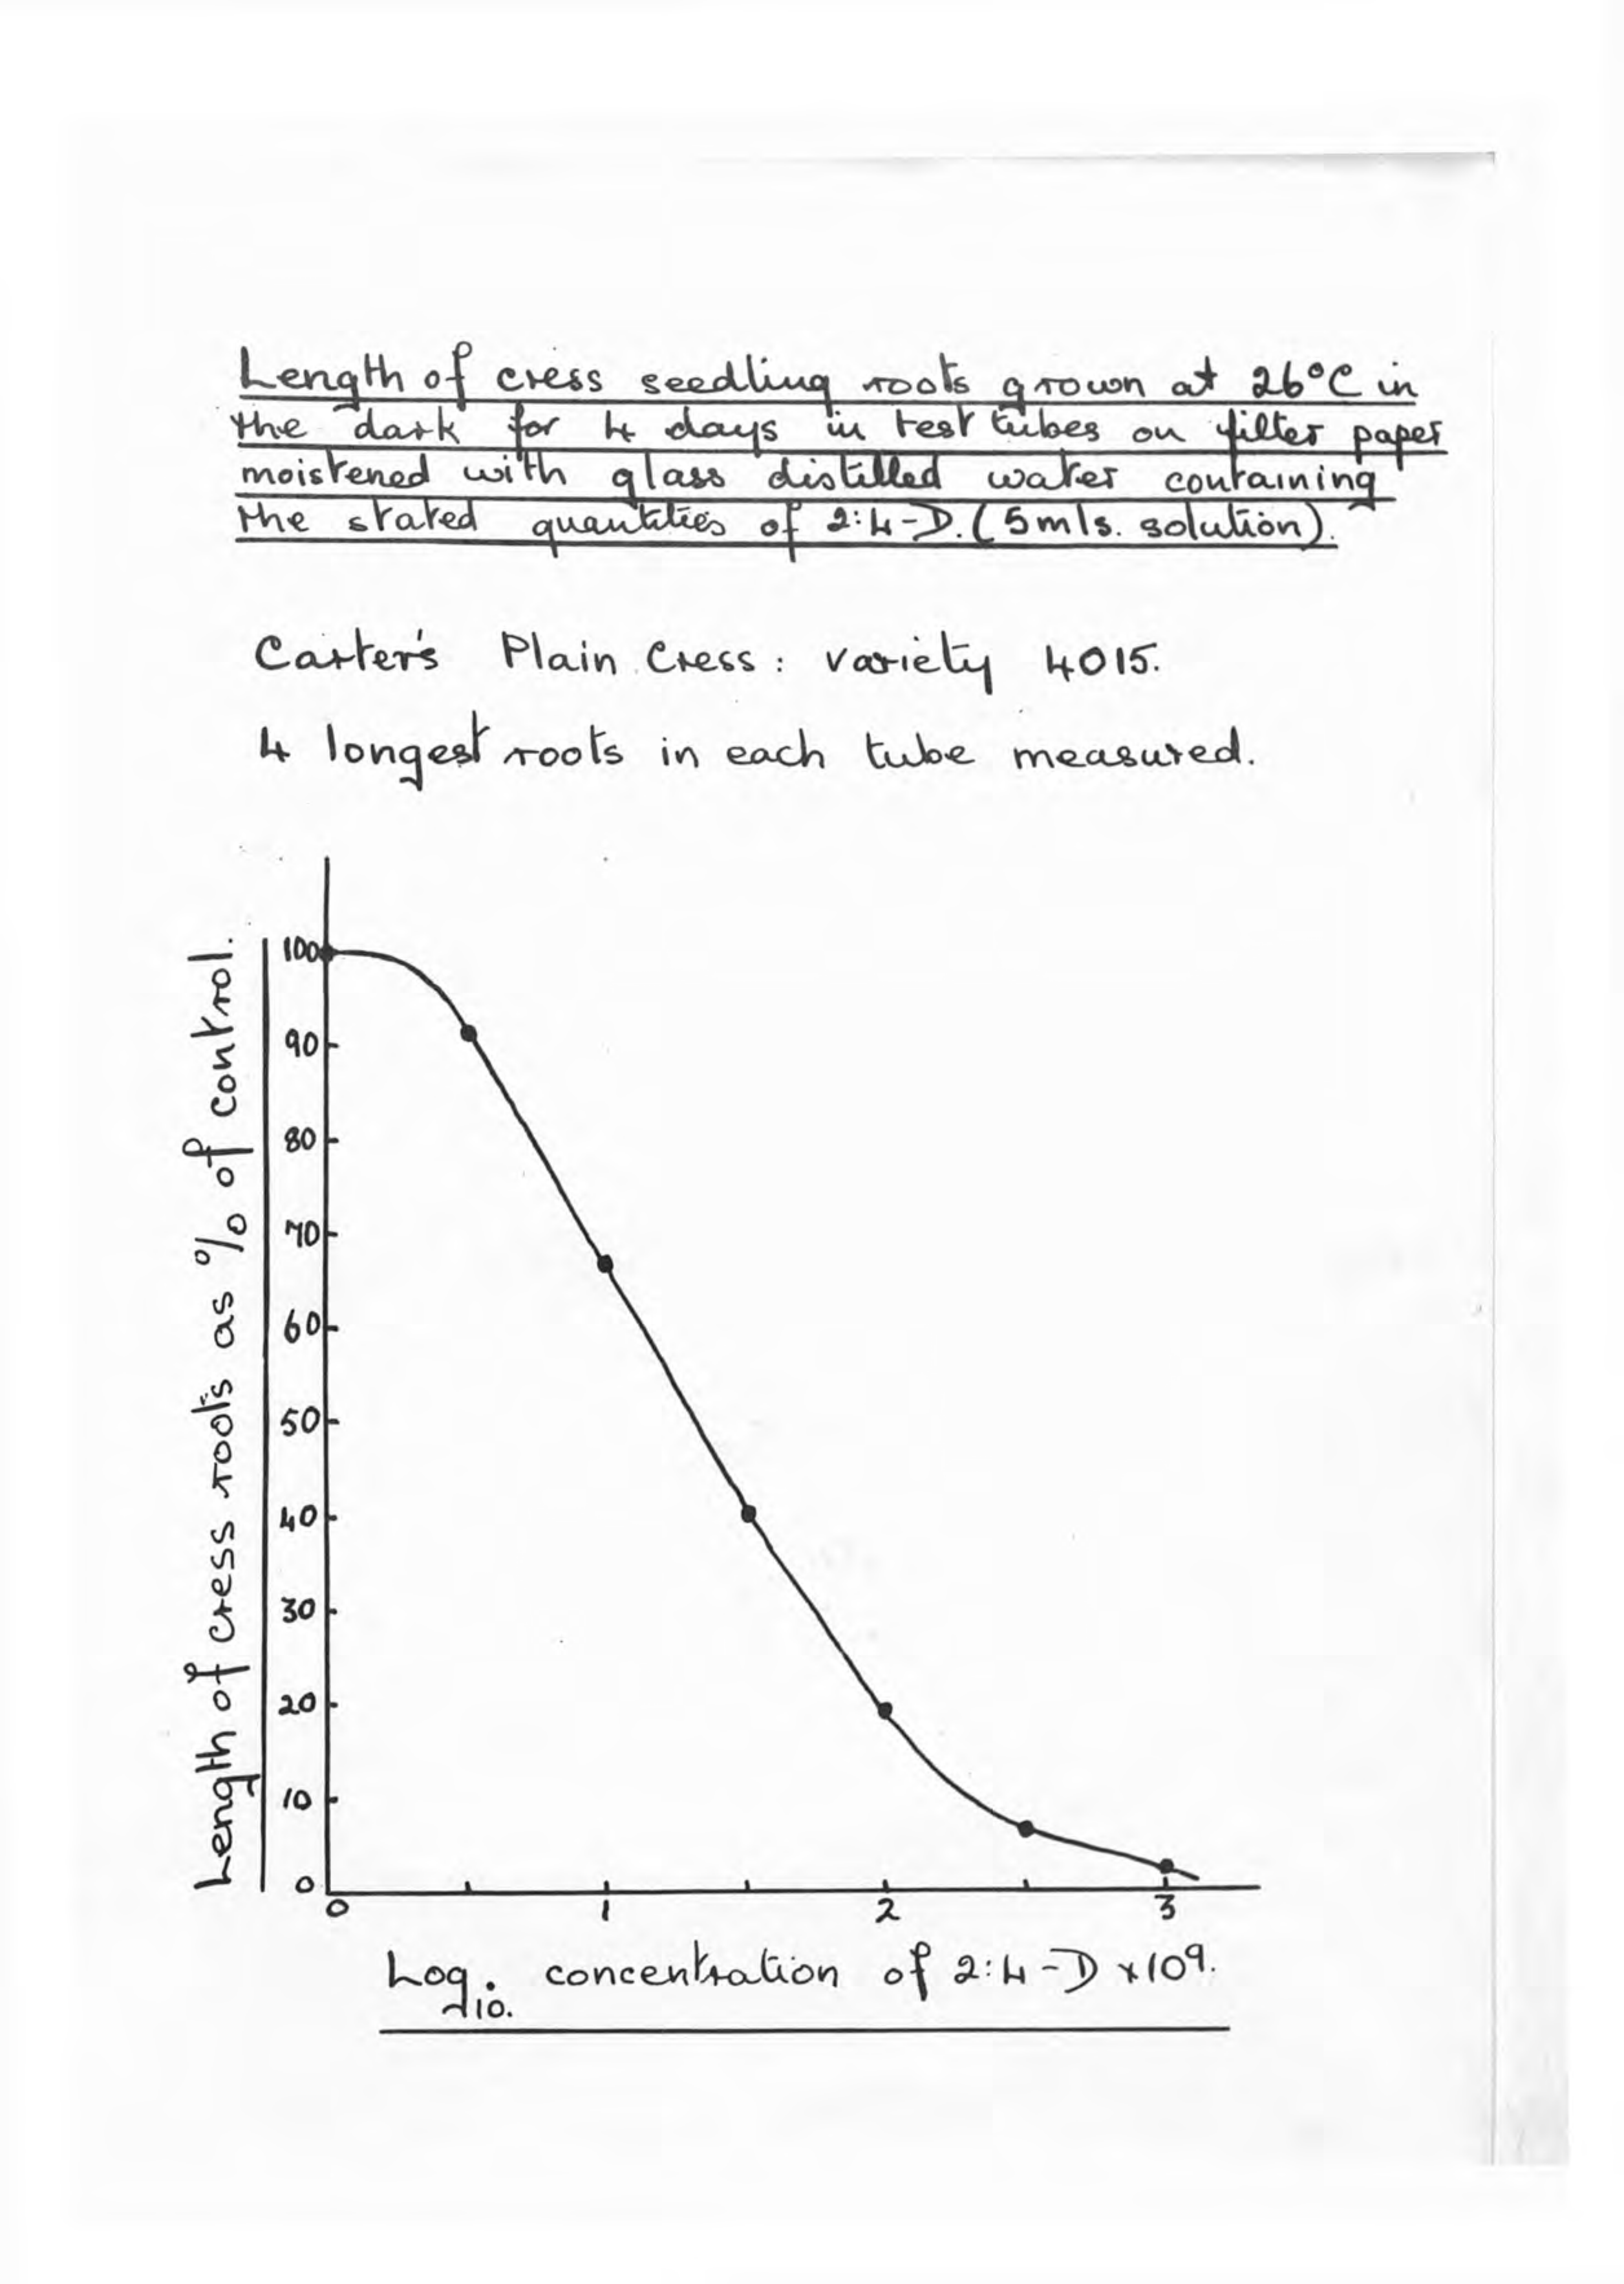 Length of cress seedling roots grown at 26°C in
the dark for 4 days in test tubes on filter paper
moistened with glass distilled water containing
the stated quantities of 2:4-D. (5mls. solution).
Carter's Plain Cress: variety 4015.
4 longest roots in each tube measured.
Length of cress roots as % of control.
100
90
80
70
60
50
40
30
20
10
0
0 1 2 3
Log10. concentration of 2:4-D x10⁹.